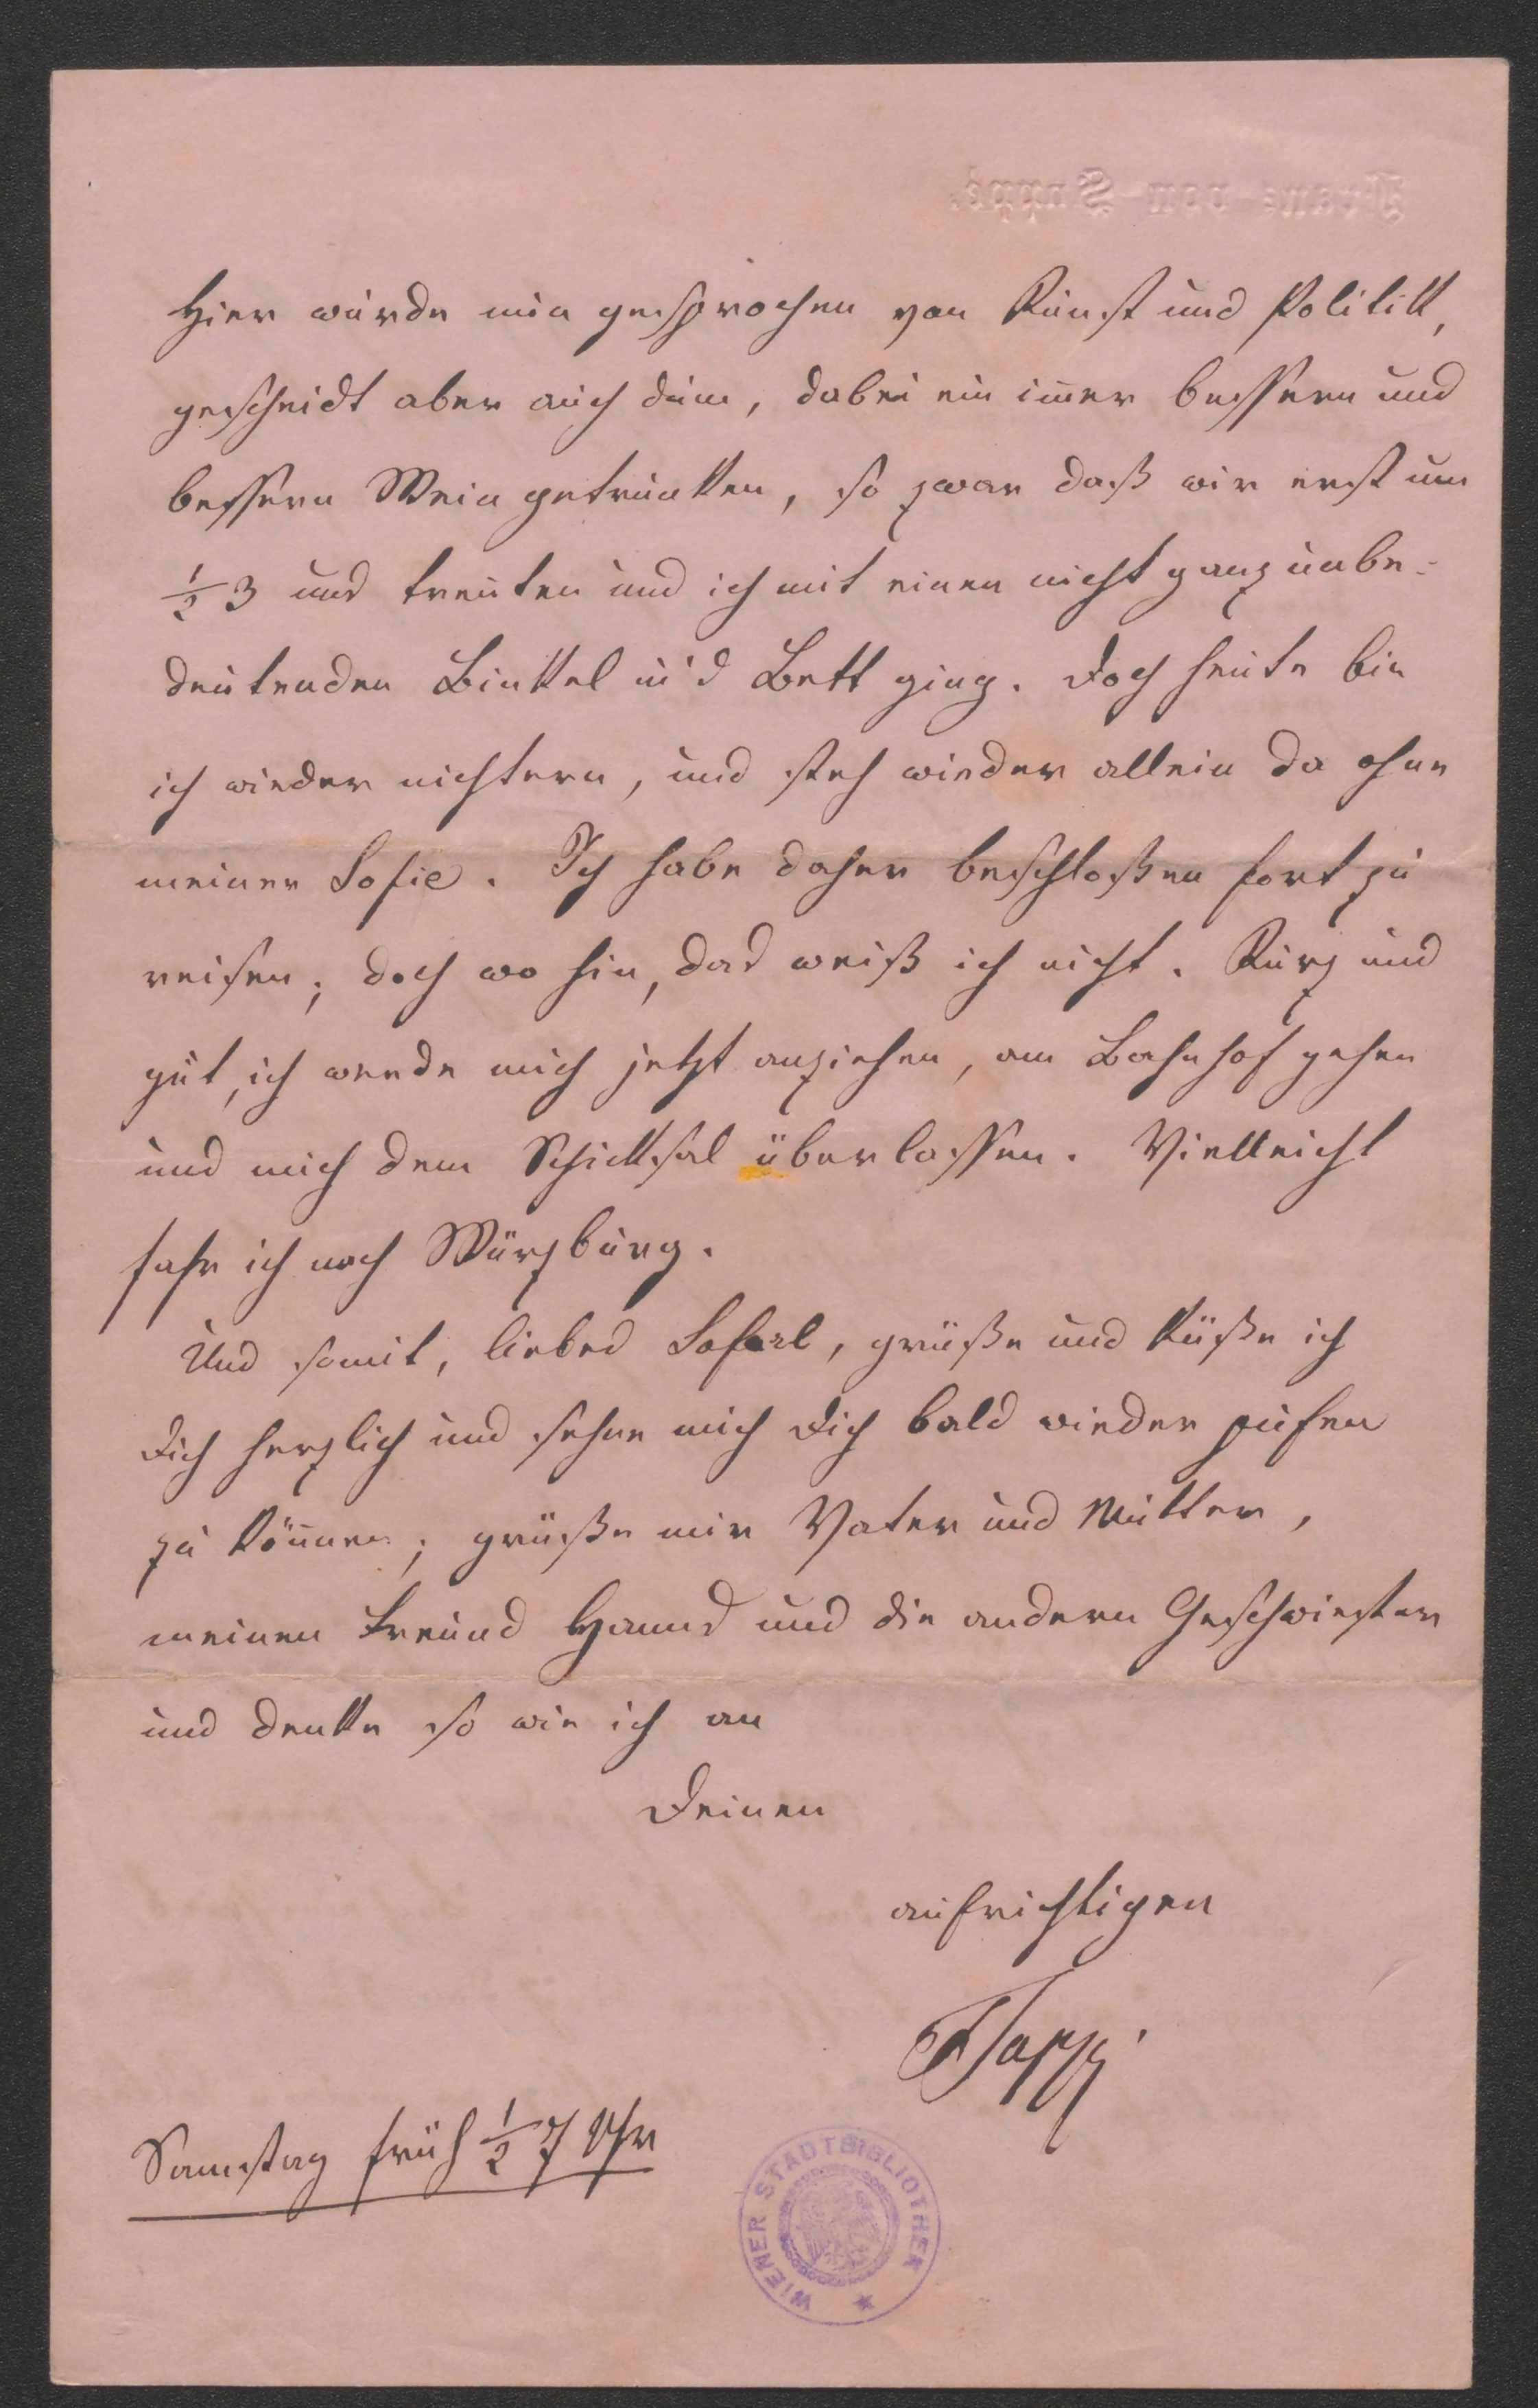 Franz von Suppé.
Hier wurde nun gesprochen von Kunst und Politikk,
gescheidt aber auch dum̅, dabei ein im̅er bessern und
bessern Wein getrunkken, so zwar daß wir erst um
½ 3 uns trenten und ich mit einen nicht ganz unbe-
deutenden Binkkel in's Bett ging. Doch heute bin
ich wieder nichtern, und steh wieder allein da ohne
meiner Sofie. Ich habe daher beschloßen fort zu
reisen; doch wo hin, das weiß ich nicht. Kurz und
gut, ich werde mich jetzt anziehen, am Bahnhof gehen
und mich dem Schikksal überlassen. Vielleicht
fahr ich nach Würzburg.
Und somit, liebes Soferl, grüße und küße ich
Dich herzlich und sehne mich Dich bald wieder
zu kön̅en; grüße mir Vater und Mutter,
meinen Freund Hanns und die andern Geschwister
und denkke so wie ich an
Deinen
aufrichtigen
Samstag früh ½ 7 Uhr
WIENER STADTBIBLIOTHEK